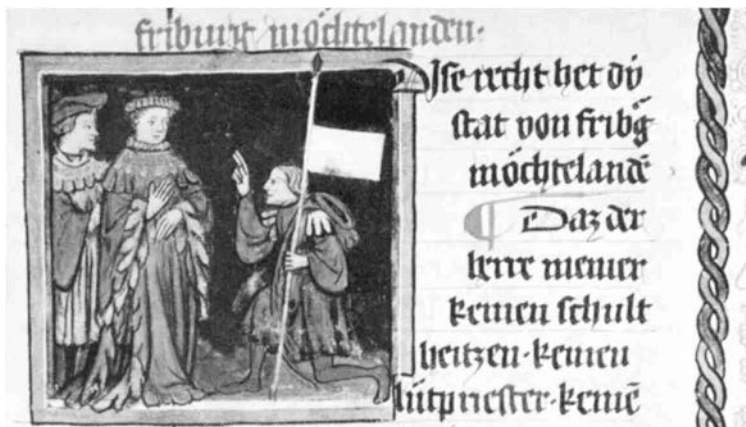 friburg möchtelanden·
Dise recht het dü
stat von fribg
möchtelandē
Daz der
herre niemer
keinen schult
heitzen·keinen
lütpriester·keinē